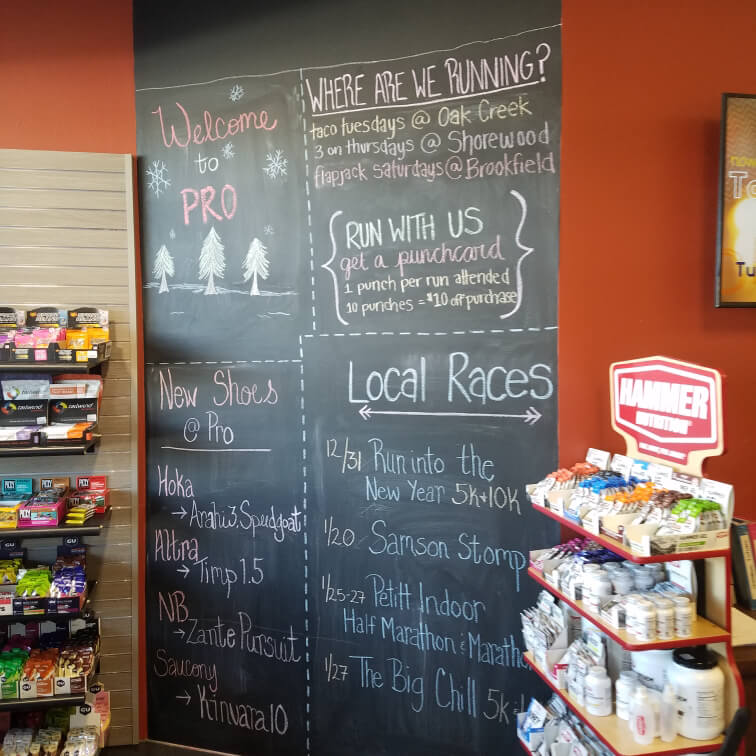 Welcome
to
PRO
WHERE ARE WE RUNNING?
taco tuesdays @ Oak Creek
3 on Thursdays @ Shorewood
flapjack saturdays @ Brookfield
RUN WITH US
get a punchcard
1 punch per run attended
10 punches = $10 off purchase
New Shoes
@ Pro
Hoka
→ Arahi 3, Speedgoat
Altra
→ Timp 1.5
NB
→ Zante Pursuit
Saucony
→ Kinvara 10
Local Races
12/31 Run into the
New Year 5k+10k
1/20 Samson Stomp
1/25-27 Petitt Indoor
Half Marathon & Marath
1/27 The Big Chill 5k
HAMMER
NUTRITION
tailwind
tailwind
GU
GU
GU
now
To
Tu